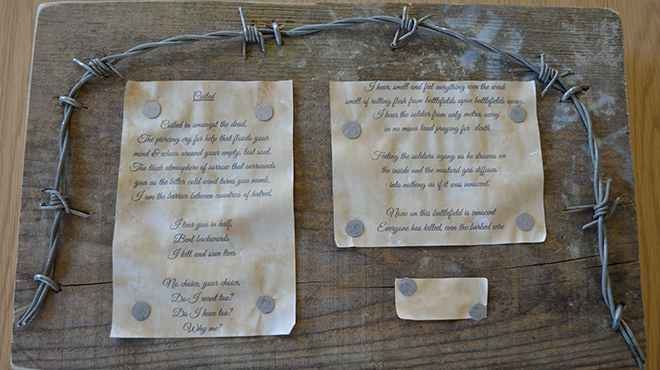 Coiled
Coiled in amongst the dead,
The piercing cry for help that floods your
mind & echoes around your empty, lost soul.
The thick atmosphere of sorrow that surrounds
you as the bitter cold wind turns you numb,
I am the barrier between countries of hatred.
I tear you in half,
Bent backwards
I kill and save lives
No choice, your choice,
Do I want too?
Do I have too?
Why me?
I hear, smell and feel everything even the weak
smell of rotting flesh from battlefields upon battlefields away.
I hear the soldier from only metres away
in no mans land praying for death.
Feeling the soldiers agony as he drowns on
the inside and the mustard gas diffuses
into nothing as if it was innocent.
None on this battlefield is innocent
Everyone has killed, even the barbed wire